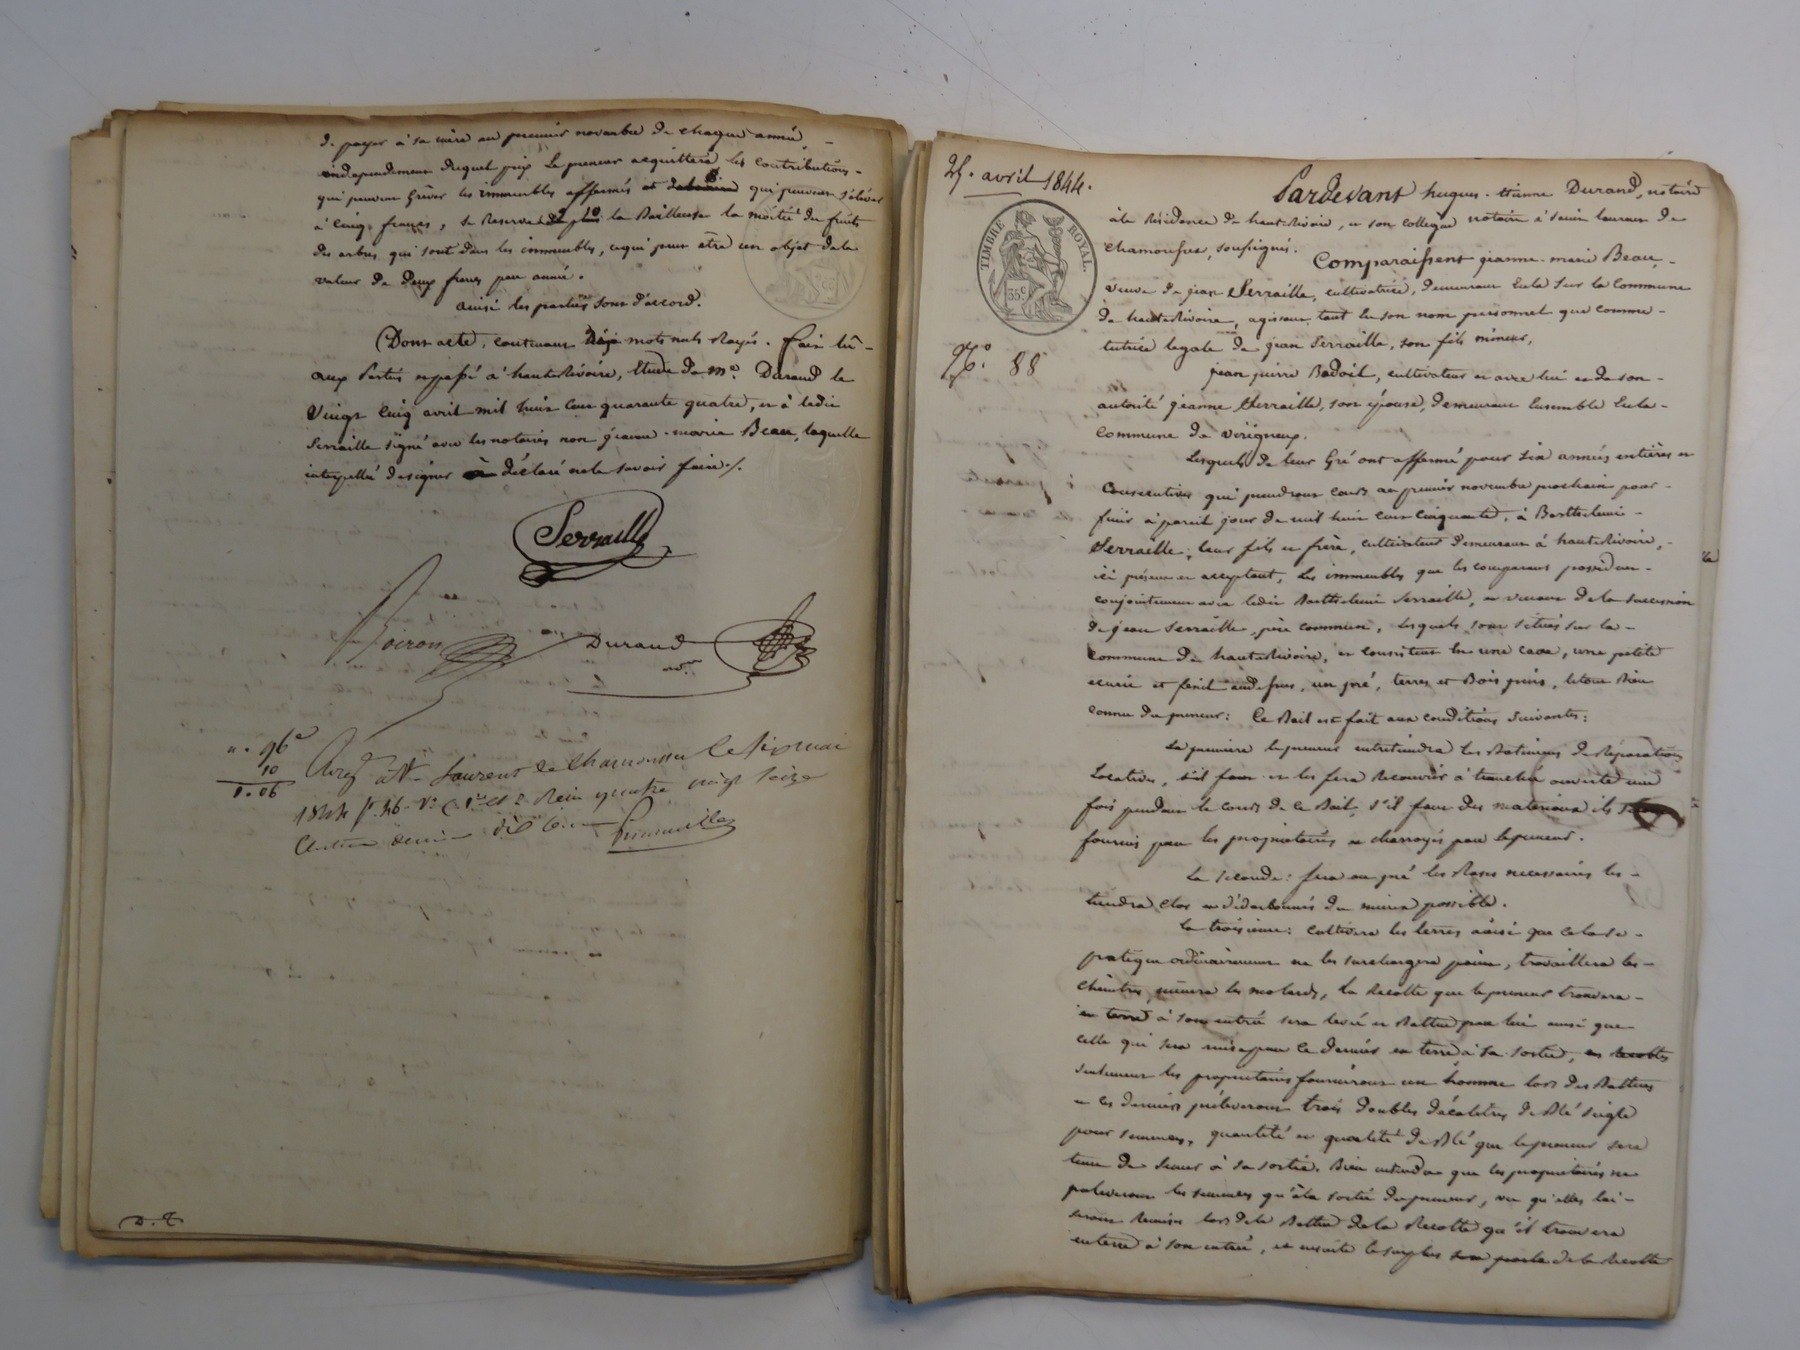 de payer à sa mère au premier novembre de chaque année,
indépendamment duquel prix le preneur acquittera les contributions
qui peuvent grêver les immeubles affermés et qui peuvent s'élever
à cinq francs, se Réserve la Bailleresse la moitié du fruits
des arbres qui sont dans les immeubles, ce qui peut être un objet de la
valeur de deux francs par année.
ainsi les parties sont d'accord.
Dont acte, contenant mots nuls Rayés. fait lû
aux Parties et passé à haute Rivoire, Etude de Me. Durand le
vingt cinq avril mil huit cent quarante quatre, et a ledit
Serraille signé avec les notaires non jeanne-marie Beau, laquelle
interpellée de signer a déclaré ne le savoir faire ./.
Serraille
Voiron
Durand
n. 96c
10
1.06
Enrg à St Laurent de Chamousset le six mai
1844 fo 46 Vo C. 1re et 2 Reçu quatre vingt seize
centimes décime dix cent
D. F
25. avril 1844.
TIMBRE ROYAL.
35c
No. 88
Pardevant hugues-etienne Durand, notaire
à la Résidence de haute Rivoire, et son collegue notaire à saint laurent de
chamousset, soussignés.
Comparaissent jeanne-marie Beau,
veuve de jean Serraille, cultivatrice, demeurant sur la Commune
de haute Rivoire, agissant tant en son nom personnel que comme
tutrice legale de jean Serraille, son fils mineur,
jean pierre Badoil, cultivateur et avec lui et de son
autorité jeanne Serraille, son épouse, demeurant Ensemble En la
commune de virigneux.
Lesquels de leur Gré ont affermé pour six années entières et
Consecutives qui prendront cours au premier novembre prochain pour
finir à pareil jour de mil huit cent cinquante, à Barthelemi
Serraille, leur fils et frère, cultivateur demeurant à haute Rivoire,
ici présent et acceptant, Les immeubles que les comparants possedent
conjointement avec ledit Barthelemi Serraille, et venant de la succession
de jean Serraille, père commun, lesquels sont situés sur la
commune de haute Rivoire, et consistent en une cave, une petite
ecurie et fenil au dessus, un pré, terres et Bois pins, le tout Bien
connu du preneur: Ce Bail est fait aux conditions suivantes:
La première le preneur entretiendra les Batimens de Réparations
Locatives, et les fera Recouvrir à tranchée ouverte une
fois pendant le cours de ce Bail, s'il faut des materiaux ils
fournis par les propriétaires et charroyés par le preneur.
La seconde: fera au pré les Rases necessaires les
tiendra clos et du mieux possible.
La troisième: cultivera les terres ainsi que cela se
pratique ordinairement ne les surchargera point, travaillera les
chaintres, minera les molards, la Recolte que le preneur trouvera
en terre à son entrée sera levée et Battue par lui ainsi que
celle qui sera mise par ce dernier en terre à sa sortie,
seulement les propriétaires fourniront un homme lors des Battues
et ces derniers prélèveront trois doubles décalitres de Blé seigle
pour semences, quantité et qualité de Blé que le preneur sera
tenu de semer à sa sortie. Bien entendu que les propriétaires ne
prélèveront les semences qu'à la sortie du preneur, vu qu'elles lui
seront Remises lors de la Battue de la Recolte qu'il trouvera
en terre à son entrée, et ensuite le surplus de la Recolte